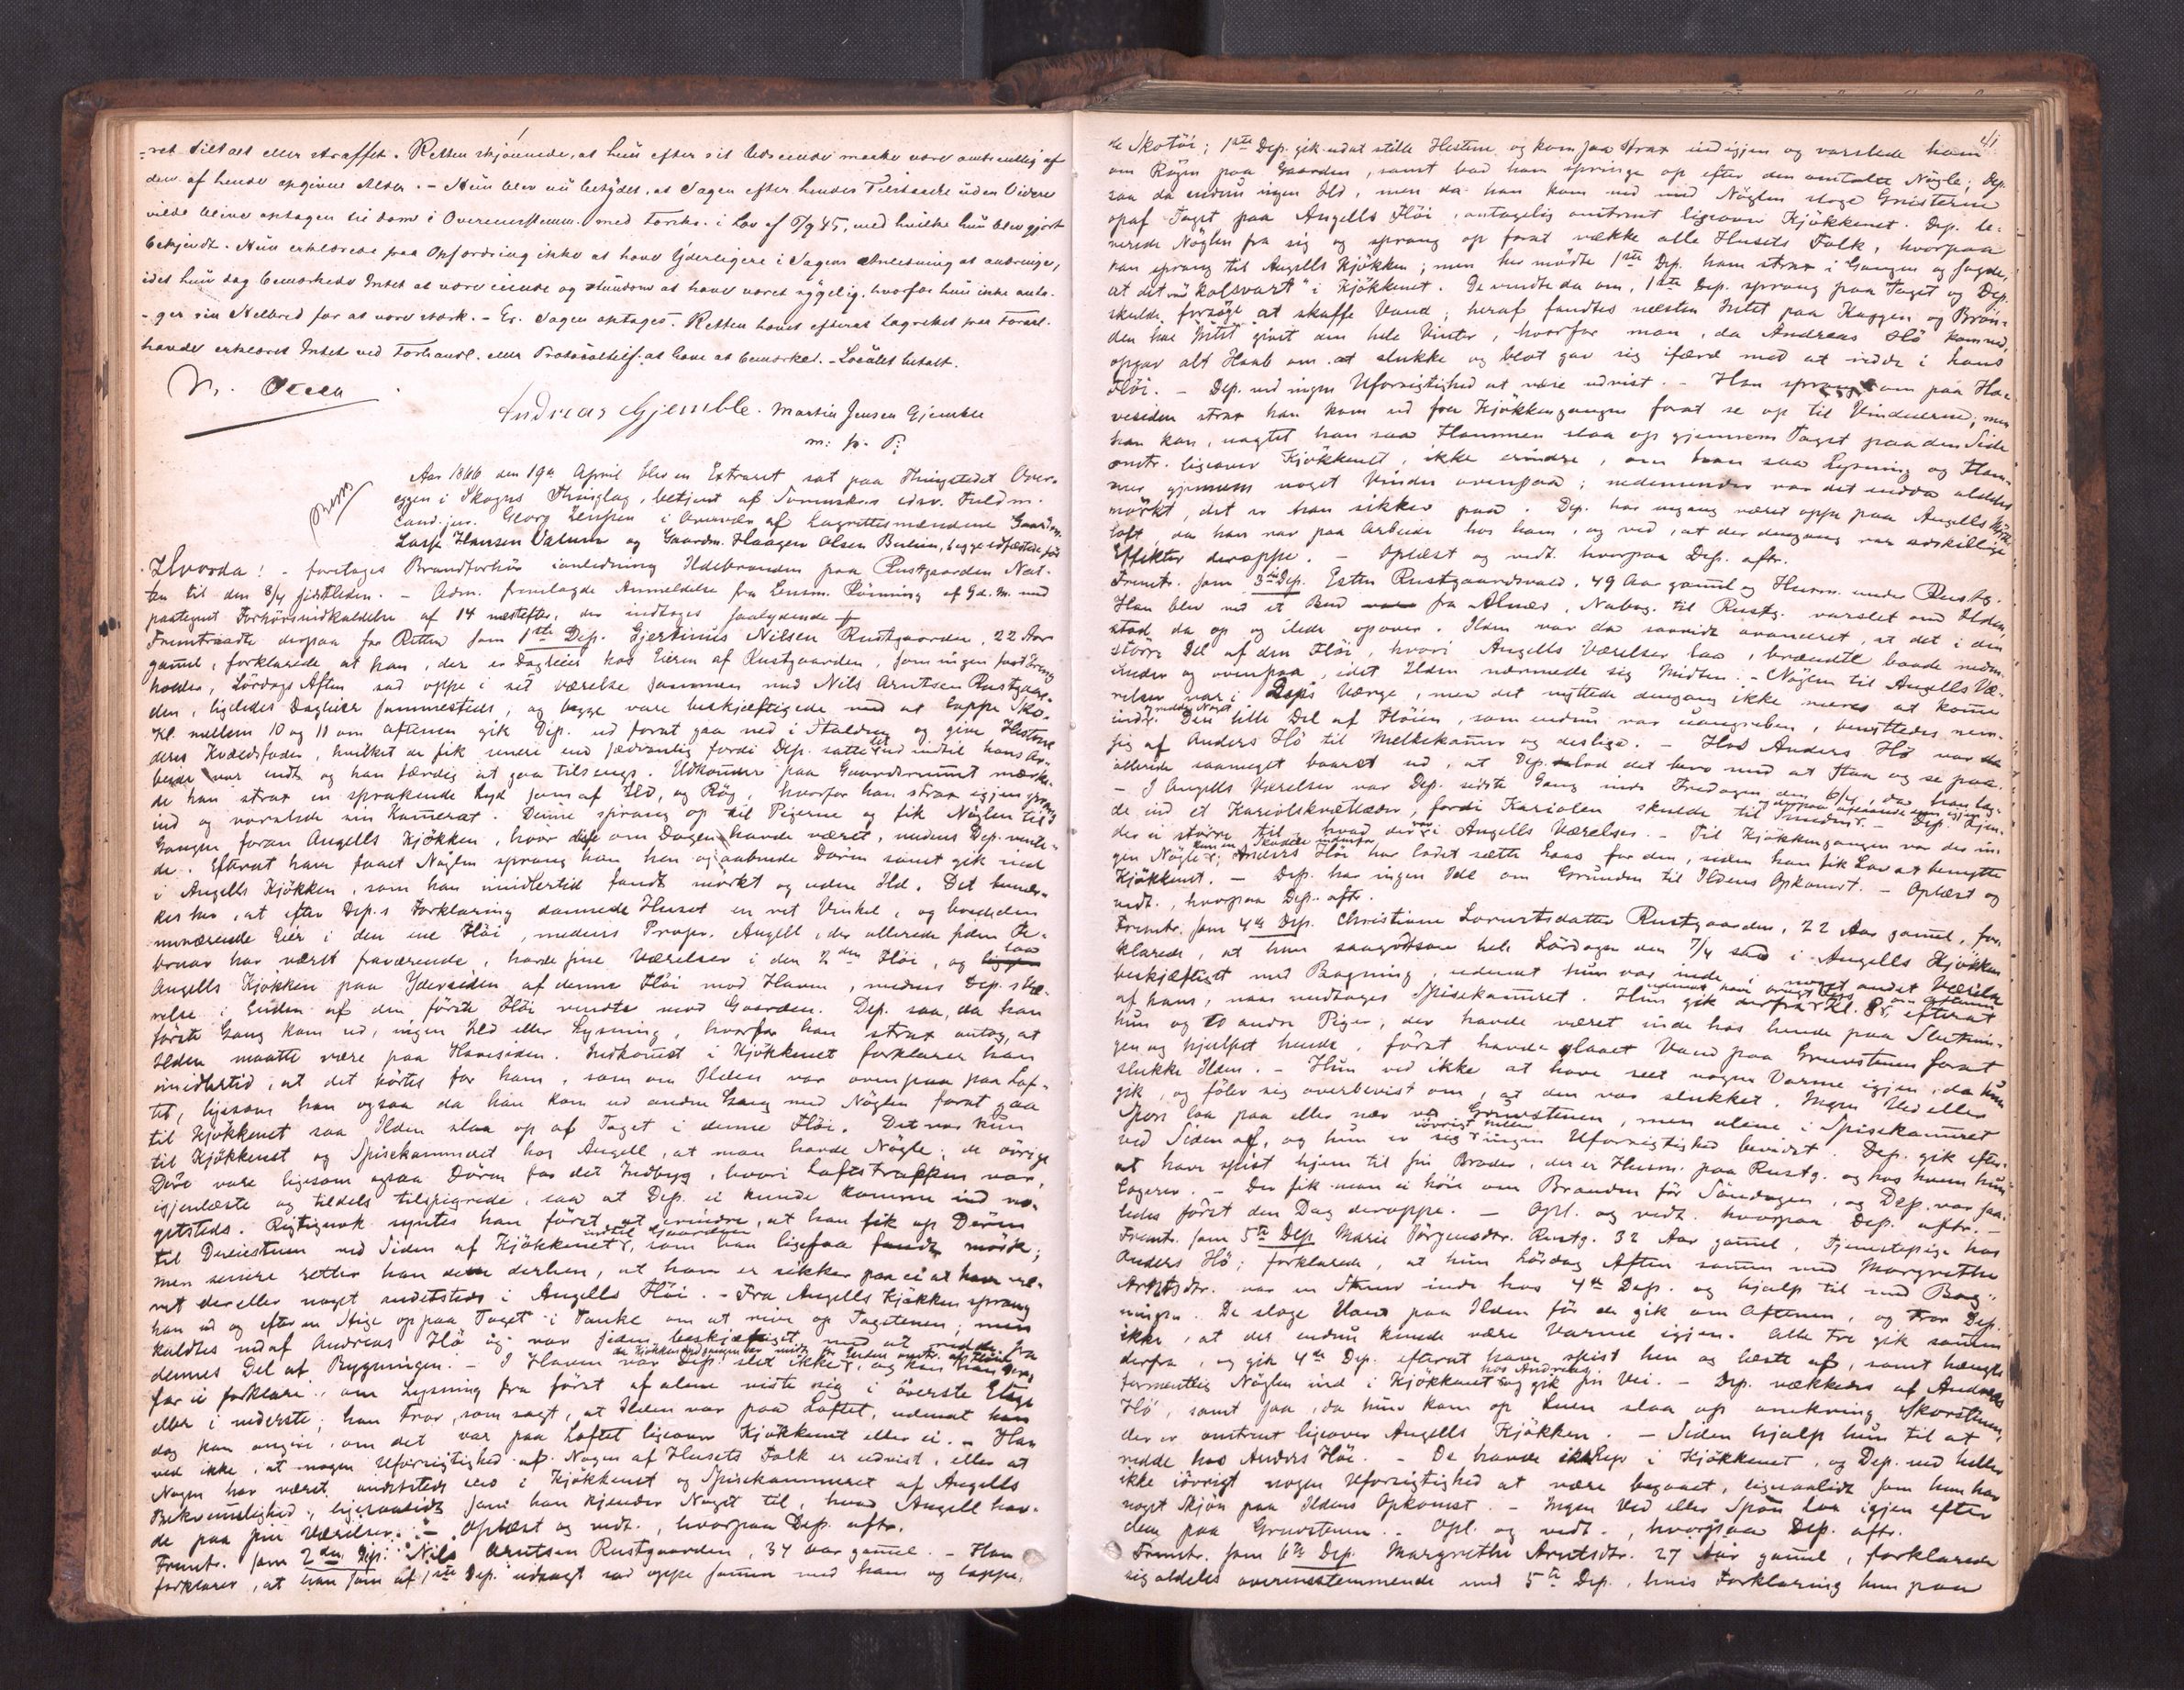 -ret tiltalt eller straffet. Retten skjønnede, at hun efter sit Udseende maatte være omtrentlig af
den af hende opgivne Alder. - Hun blev nu betydet, at Sagen efter hendes Tilstaaelse uden Videre
vilde blive optagen til Dom i Overensstemm. med Forskr. i Lov af 6/9 45, med hvilke hun blev gjort
bekjendt. Hun erklærede paa Opfordring ikke at have Yderligere i Sagens Anledning at anbringe,
idet hun dog bemærkede Intet at være eiende og stundom at have været sygelig, hvorfor hun ikke anta-
-ger sin Helbred for at være stærk. - Er. Sagen optages. Retten hævet efterat Lagrettet paa Foresp.
havde erklæret Intet ved Forhandl. eller Protocoltilf. at have at bemærke. - Localet betalt.
Andreas Gjemble. Martin Jensen Gjemble
m: p. P:
Aar 1866 den 19de April blev en Extraret sat paa Thingstedet Over-
eggen i Skogns Thinglag, betjent af Sorenskr.s edsv. Fuldm.
Cand. jur. Georg Jenssen i Overvær af Lagrettesmændene Gaardm.
Lasse Hansen Valum og Gaardm. Haagen Olsen Berliin, begge edfæstede før
Hvorda! - foretages Brandforhør i anledning Ildebranden paa Rustgaarden Nat-
ten til den 8/4 sidstleden. - Adm. fremlagde Anmeldelse fra Lensm. Rønning af Gd. M. med
paategnet Forhørsindkaldelse af 14 næstefter, der indtages saalydende +
Fremtraadte derpaa for Retten som 1ste Dep. Gjertinius Nilsen Rustgaarden, 22 Aar
gamel, forklarede at han, der er Dagleier hos Eieren af Rustgaarden, som ingen fast Dreng
holder, Lørdags Aften sad oppe i sit Værelse sammen med Nils Arntsen Rustgaar-
den, ligeledes Dagleier sammesteds, og begge vare beskjæftigede med at lappe Sko.
Kl. mellem 10 og 11 om Aftenen gik Dep. ud forat gaa ned i Stalden og give Hestene
deres Kveldsfoder, hvilket de fik senere end sædvanlig fordi Dep. satte det ud indtil hans Ar-
beide var endt og han færdig at gaa tilsengs. Udkommen paa Gaardsrummet mærke-
de han strax en sprakende Lyd som af Ild, og Røg, hvorfor han strax igjen sprang
ind og varslede sin Kamerat. Denne sprang op til Pigerne og fik Nøglen til
Gangen foran Angells Kjøkken, hvor disse om Dagen havde været, medens Dep. vente-
de. Efterat have faaet Nøglen sprang han hen og aabnede Døren samt gik ind
i Angells Kjøkken, som han imidlertid fandt mørkt og uden Ild. Det bemær-
kes her, at efter Dep.s Forklaring dannede Huset en ret Vinkel, og boede den
nuværende Eier i den ene Fløi, medens Propr. Angell, der allerede siden Fe-
bruar har været fraværende, havde sine Værelser i den 2den Fløi, og laa
Angells Kjøkken paa Ydersiden af denne Fløi mod Haven, medens Dep.s Væ-
relse i Enden af den første Fløi vendte mod Gaarden. Dep. saa, da han
første Gang kom ud, ingen Ild eller Lysning, hvorfor han strax antog, at
Ilden maatte være paa Havesiden. Indkomst i Kjøkkenet forklarer han
imidlertid, at det hørtes for ham, som om Ilden var ovenpaa paa Lof-
tet, ligesom han ogsaa da han kom ud anden Gang med Nøglen forat gaa
til Kjøkkenet saa Ilden slaa op af Taget i denne Fløi. Det var kun
til Kjøkkenet og Spisekammeret hos Angell, at man havde Nøgle; de øvrige
Døre vare ligesom ogsaa Døren for det Indbyg, hvori Loftstrappen var,
igjenlæste og tildels tilspigrede, saa at Dep. ei kunde komme ind no-
getsteds. Rigtignok syntes han først at erindre, at han fik op Døren
til Dreiestuen ved Siden af Kjøkkenet indtil Gaarden, som han ligesaa fandt mørk;
men senere retter han dette derhen, at han er sikker paa ei at have væ-
ret der eller noget andetsteds i Angells Fløi. - Fra Angells Kjøkken sprang
han ud og efter en Stige op paa Taget i Tanke om at rive op Tagstenen; men
kaldtes ned af Andreas Hø og var siden beskjæftiget med at redde fra
dennes Del af Bygningen. - I Haven var Dep. slet ikke, og kan han der-
for ei forklare, om Lysning fra først af alene viste sig i øverste Etage
eller i nederste; han tror, som sagt, at Ilden var paa Loftet, udenat han
dog kan angive, om det var paa Loftet ligeover Kjøkkenet eller ei. - Han
ved ikke, at nogen Uforsigtighed af Nogen af Husets Folk er udvist, eller at
Nogen har været andetsteds end i Kjøkkenet og Spisekammeret af Angells
Bekvemmelighed, ligesaalidt som han kjender Noget til, hvad Angell hav-
de paa sine Værelser. - Oplæst og vedt., hvorpaa Dep. aftr.
Fremtr. som 2den Dep. Nils Arntsen Rustgaarden, 34 Aar gamel. - Han
forklarer, at han som af 1ste Dep. udsagt sad oppe sammen med ham og lappe-
41
de Skotøi; 1ste Dep. gik ud at stille Hestene og kom saa strax ind igjen og varslede ham
om Røgen paa Gaarden, samt bad ham springe op efter den omtalte Nøgle; Dep.
saa da endnu ingen Ild, men da han kom ned med Nøglen sloge Gnisterne
opaf Taget paa Angells Fløi, antagelig omtrent ligeover Kjøkkenet. Dep. le-
verede Nøglen fra sig og sprang op forat vække alle Husets Folk, hvorpaa
han sprang til Angells Kjøkken; men her mødte 1ste Dep. ham strax i Gangen og sagde,
at det var "kolsvart" i Kjøkkenet. De vendte da om, 1ste Dep. sprang paa Taget og Dep.
skulde forsøge at skaffe Vand; heraf fandtes næsten Intet paa Kaggen og Brøn-
den har Intet givet den hele Vinter, hvorfor man, da Andreas Hø kom ned,
opgav alt Haab om at slukke og blot gav sig ifærd med at redde i hans
Fløi. - Dep. ved ingen Uforsigtighed at være udvist. - Han sprang om paa Ha-
vesiden strax han kom ud fra Kjøkkengangen forat se op til Vinduerne; men
han kan, uagtet han saa Flammen slaa op gjennem Taget paa den Side
omtr. ligeover Kjøkkenet, ikke erindre, om han saa Lysning og Flam-
mer gjennem noget Vindu ovenpaa; nedenunder var det endda aldeles
mørkt, det er han sikker paa. Dep. har engang været oppe paa Angells Mørke-
loft, da han var paa Arbeide hos ham, og ved, at der dengang var adskillige
Effekter deroppe. - Oplæst og vedt. hvorpaa Dep. aftr.
Fremtr. som 3die Dep. Esten Rustgaardsvald, 49 Aar gamel og Husm. under Rustg.
Han blev ved et Bud fra Alnæs, Nabog. til Rustg. varslet om Ilden,
stod da op og ilede opover. Ilden var da saavidt avanceret, at det i den
større Del af den Fløi, hvori Angells Værelser laa, brændte baade neden-
under og ovenpaa, idet Ilden nærmede sig Midten. - Nøglen til Angells Væ-
relser var i Dep.s Værge, men det nyttede dengang ikke mere at komme
ind og redde Noget. Den lille Del af Fløien, som endnu var uangreben, benyttedes nem-
lig af Anders Hø til Melkekammer og deslige. - Hos Anders Hø var da
allerede saameget baaret ud, at Dep. lod det bero med at staa og se paa.
- I Angells Værelser var Dep. sidste Gang inde Fredagen den 6/4, da han lag-
de ind et Kariolskvætlæder, fordi Kariolen skulde til Smeden. - Dep. kjen-
der ei større til, hvad der var i Angells Værelser. - Til Kjøkkengangen var der in-
gen Nøgle; Anders Hø har ladet sætte Laas for den, siden han fik Lov at benytte
Kjøkkenet. - Dep. har ingen Idé om Grunden til Ildens Opkomst. - Oplæst og
vedt., hvorpaa Dep. aftr.
Fremtr. som 4de Dep. Christiane Lorentsdatter Rustgaarden, 22 Aar gamel, for-
klarede, at hun saagodtsom hele Lørdagen den 7/4 sad i Angells Kjøkken
beskjæftiget med Bagning, udenat hun var inde i noget andet Værelse
af hans, naar undtages Spisekammeret. Hun gik derfra Kl. 8 om Aftenen, efterat
hun og to andre Piger, der havde været inde hos hende paa Slutnin-
gen og hjulpet hende, først havde slaaet Vand paa Gruestenen forat
slukke Ilden. - Hun ved ikke at have seet nogen Varme igjen, da hun
gik, og føler sig overbevist om, at den var slukket. Ingen Ved eller
Spon laa paa eller nær ved Gruestenen, men alene i Spisekammeret
ved Siden af, og hun er sig iøvrigt heller ingen Uforsigtighed bevidst. Dep. gik efter-
at have spist hjem til sin Broder, der er Husm. paa Rustg. og hos hvem hun
logerer. - Der fik man ei høre om Branden før Søndagen, og Dep. var saa-
ledes først den Dag deroppe. - Opl. og vedt. hvorpaa Dep. aftr. -
Fremtr. som 5te Dep. Marie Jørgensdtr. Rustg. 32 Aar gamel, Tjenestepige hos
Anders Hø; forklarede, at hun Lørdag Aften sammen med Margrethe
Arntsdtr. var en Stund inde hos 4de Dep. og hjalp til med Bag-
ningen. De sloge Vand paa Ilden før de gik om Aftenen, og tror Dep.
ikke, at der endnu kunde være Varme igjen. Alle tre gik sammen
derfra, og gik 4de Dep. efterat have spist hen og læste af, samt hængte
formentlig Nøglen ind i Kjøkkenet hos Andreas og gik sin Vei. - Dep. vækkedes af Andreas
Hø, samt saa, da hun kom op Luen slaa op omkring Skorstenen,
der er omtrent ligeover Angells Kjøkken. - Siden hjalp hun til at
redde hos Anders Hø. - De havde ikke Lys i Kjøkkenet, og Dep. ved heller
ikke iøvrigt nogen Uforsigtighed at være begaaet, ligesaalidt som hun har
noget Skjøn paa Ildens Opkomst. - Ingen Ved eller Spon laa igjen efter
dem paa Gruestenen. - Opl. og vedt., hvorpaa Dep. aftr.
Fremtr. som 6te Dep. Margrethe Arntsdtr. 27 Aar gamel, forklarede
sig aldeles overensstemmende med 5te Dep., hvis Forklaring hun paa